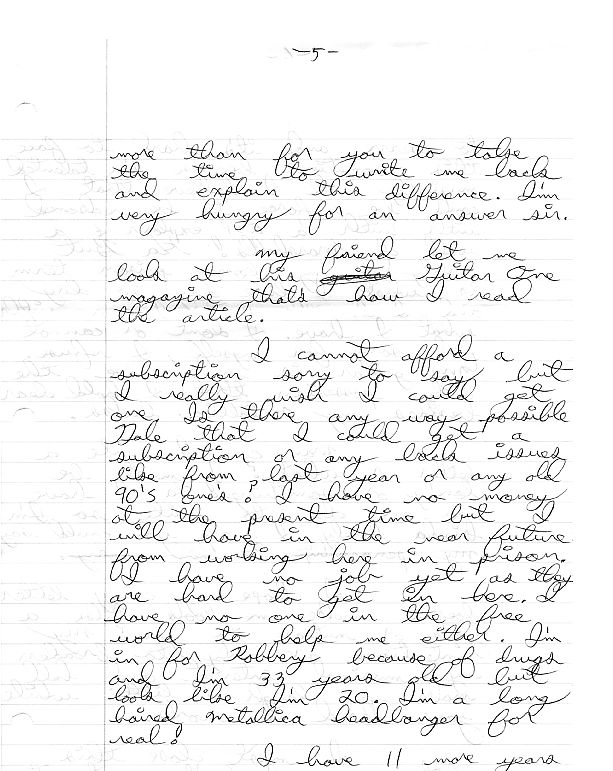 -5-
more than for you to take
the time to write me back
and explain this difference. I'm
very hungry for an answer sir.
my friend let me
look at his guitar Guitar One
magazine that's how I read
the article.
I cannot afford a
subscription sorry to say, but
I really wish I could get
one. Is there any way possible
Dale that I could get a
subscription or any back issues
like from last year or any old
90's one's? I have no money
at the present time but I
will have in the near future
from working here in prison.
I have no job yet as they
are hard to get in here. I
have no one in the free
world to help me either. I'm
in for Robbery because of drugs
and I'm 33 years old but
look like I'm 20. I'm a long
haired Metallica headbanger for
real!
I have 11 more years